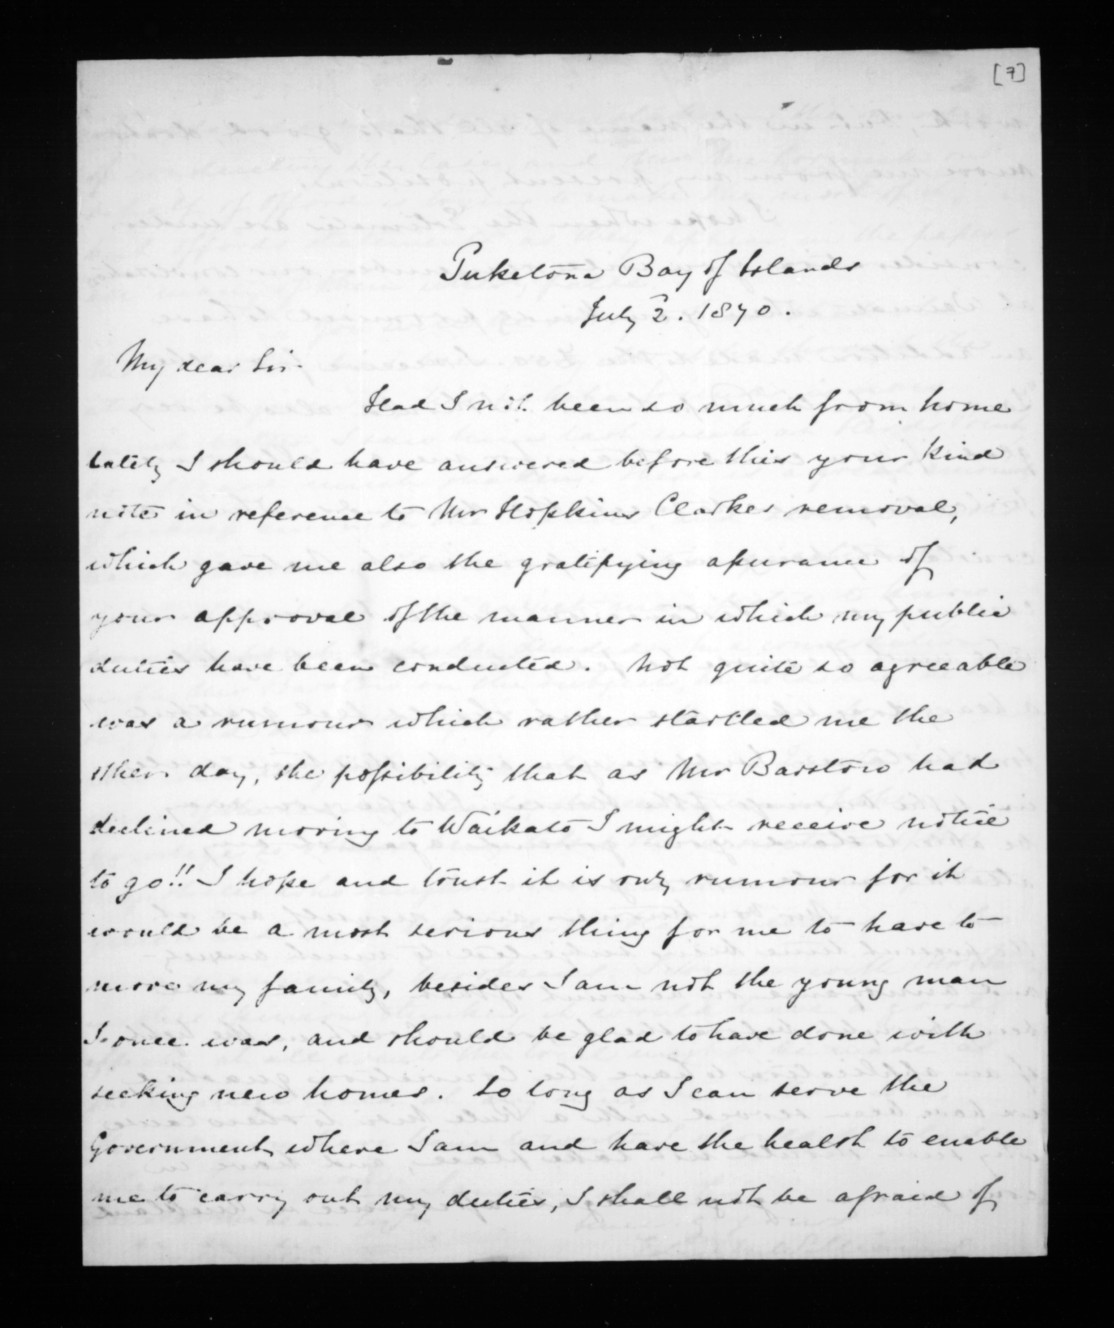 [7]
Puketona Bay of Islands
July 2. 1870.
My dear Sir
Had I not been so much from home
lately I should have answered before this your kind
note in reference to Mr Hopkins Clarkes removal,
which gave me also the gratifying assurance of
your approval of the manner in which my public
duties have been conducted. Not quite so agreeable
was a rumour which rather startled me the
other day, the possibility that as Mr Barstow had
declined moving to Waikato I might receive notice
to go!! I hope and trust it is only rumour for it
would be a most serious thing for me to have to
move my family, besides I am not the young man
I once was, and should be glad to have done with
seeking new homes. So long as I can serve the
Government where I am and have the health to enable
me to carry out my duties, I shall not be afraid of